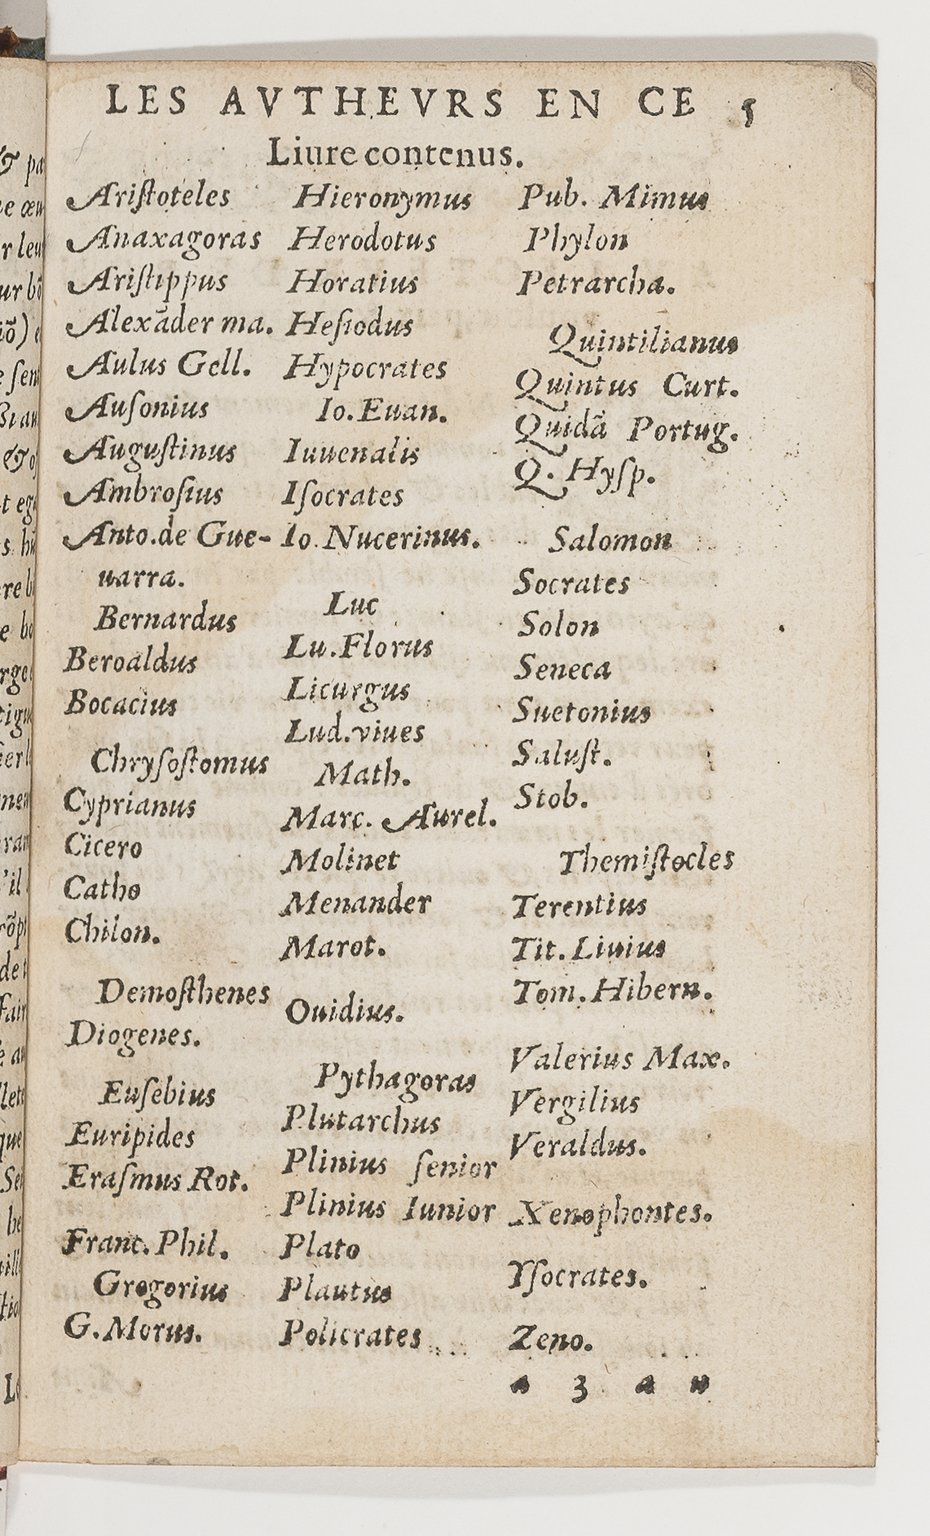 LES AVTHEVRS EN CE 5
Liure contenus.
Ariſtoteles
Anaxagoras
Ariſtippus
Alexãder ma.
Aulus Gell.
Auſonius
Auguſtinus
Ambroſius
Anto.de Gue-
uarra.
Bernardus
Beroaldus
Bocacius
Chryſoſtomus
Cyprianus
Cicero
Catho
Chilon.
Demoſthenes
Diogenes.
Euſebius
Euripides
Eraſmus Rot.
Franc. Phil.
Gregorius
G. Morus.
Hieronymus
Herodotus
Horatius
Heſiodus
Hypocrates
Io. Euan.
Iuuenalis
Iſocrates
Io. Nucerinus.
Luc
Lu. Florus
Licurgus
Lud. viues
Math.
Marc. Aurel.
Molinet
Menander
Marot.
Ouidius.
Pythagoras
Plutarchus
Plinius ſenior
Plinius Iunior
Plato
Plautus
Policrates
Pub. Mimus
Phylon
Petrarcha.
Quintilianus
Quintus Curt.
Quidã Portug.
Q. Hyſp.
Salomon
Socrates
Solon
Seneca
Suetonius
Saluſt.
Stob.
Themiſtocles
Terentius
Tit. Liuius
Tom. Hibern.
Valerius Max.
Vergilius
Veraldus.
Xenophontes.
Yſocrates.
Zeno.
a 3 a u